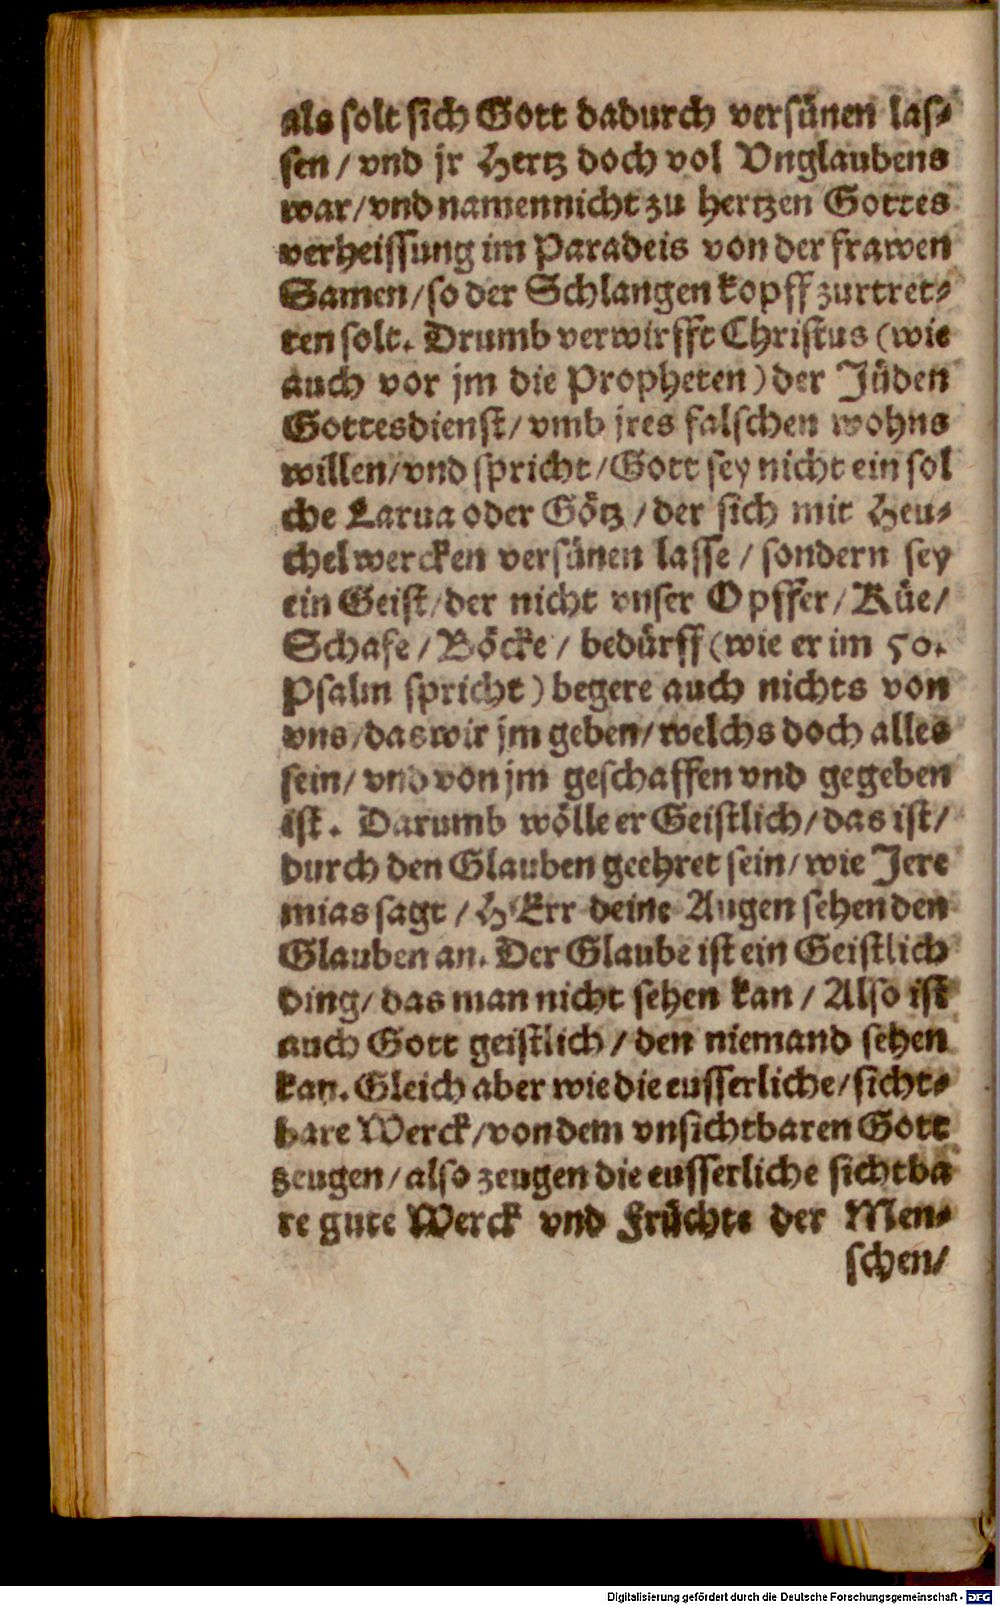 als solt sich Gott dadurch versünen las⸗
sen / vnd jr Hertz doch vol Vnglaubens
war / vnd namen nicht zu hertzen Gottes
verheissung im Paradeis von der frawen
Samen / so der Schlangen kopff zurtret⸗
ten solt. Drumb verwirfft Christus (wie
auch vor jm die Propheten) der Jüden
Gottesdienst / vmb jres falschen wohns
willen / vnd spricht / Gott sey nicht ein sol
che Larua oder Götz / der sich mit Heu⸗
chelwercken versünen lasse / sondern sey
ein Geist / der nicht vnser Opffer / Küe /
Schafe / Böcke / bedürff (wie er im 50.
Psalm spricht) begere auch nichts von
vns / das wir jm geben / welchs doch alles
sein / vnd von jm geschaffen vnd gegeben
ist. Darumb wölle er Geistlich / das ist /
durch den Glauben geehret sein / wie Jere
mias sagt / HErr deine Augen sehen den
Glauben an. Der Glaube ist ein Geistlich
ding / das man nicht sehen kan / Also ist
auch Gott geistlich / den niemand sehen
kan. Gleich aber wie die eusserliche / sicht⸗
bare Werck / von dem vnsichtbaren Gott
zeugen / also zeugen die eusserliche sichtba
re gute Werck vnd Früchte der Men⸗
schen /
Digitalisierung gefördert durch die Deutsche Forschungsgemeinschaft - DFG